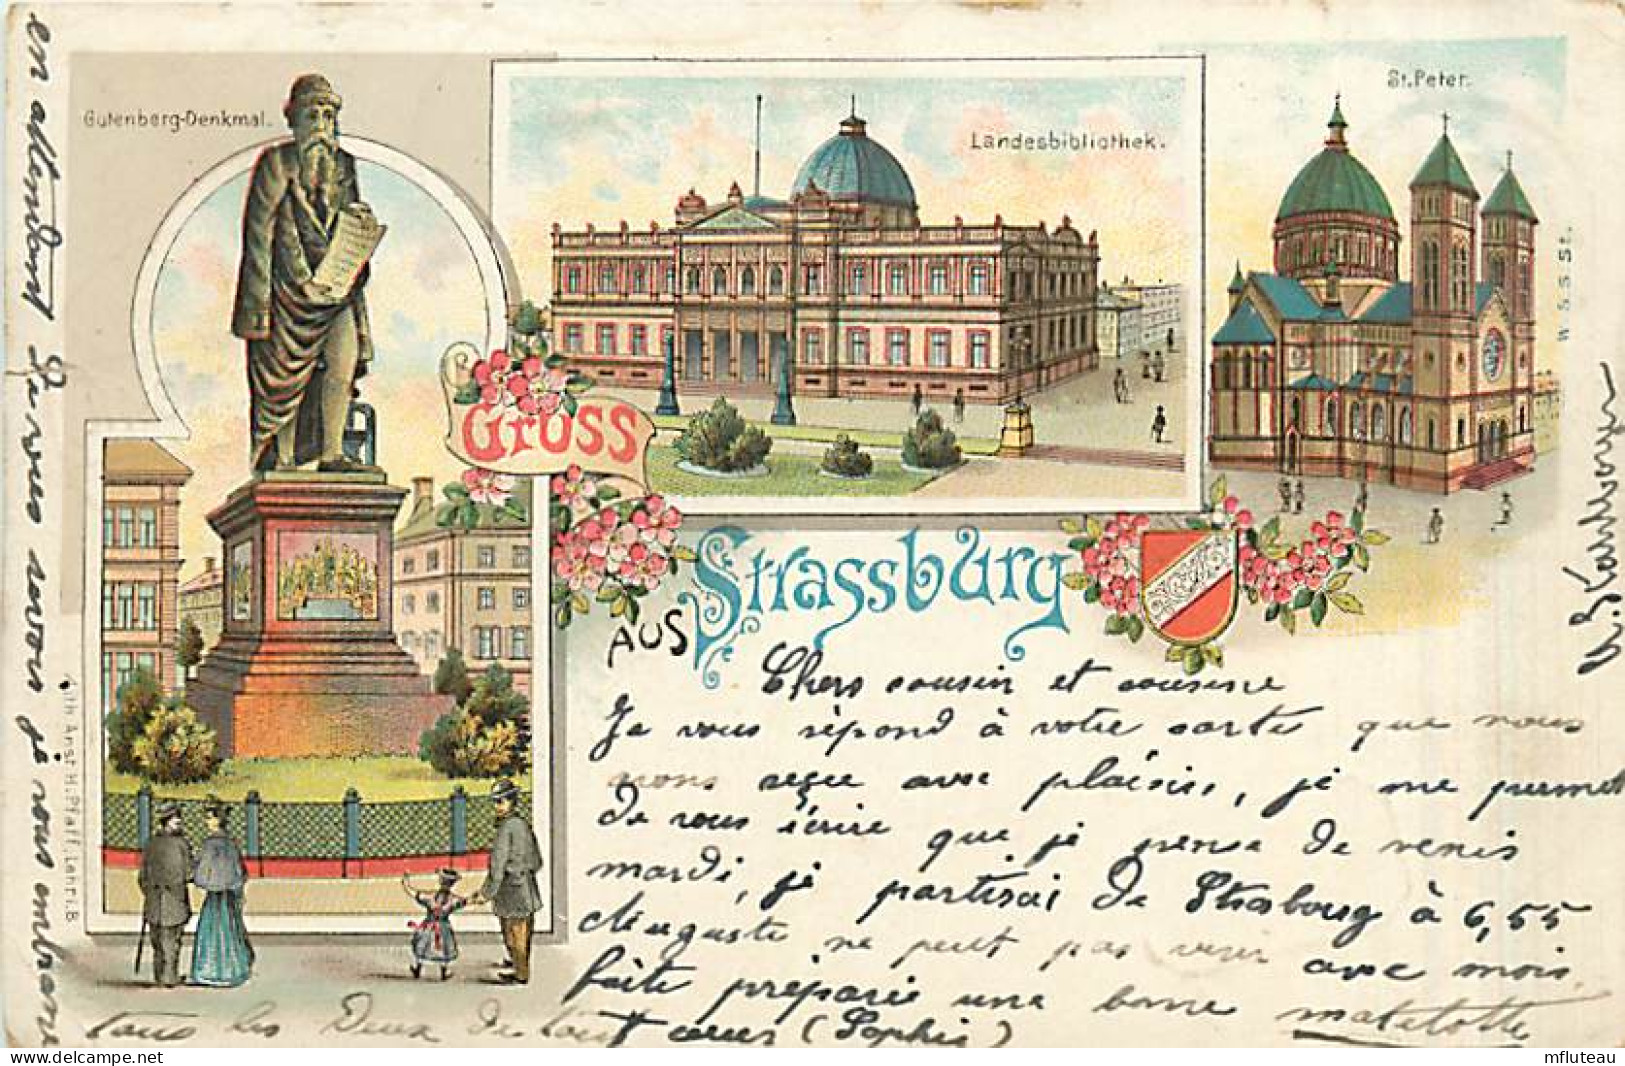 Gutenberg-Denkmal.
Landesbibliothek.
St. Peter.
W. S. S. St.
Gruss
aus Strassburg
Lith. Anst. H. Pfaff, Lahr i. B
Chers cousin et cousine
Je vous répond à votre carte que nous
avons reçue avec plaisir, je me permet
de vous écrire que je pense de venir
mardi, je partirai de Strasbourg à 6,55
Auguste ne peut pas venir avec moi
faite préparée une bonne matelotte
en attendant de vous revoir je vous embrasse
tous les deux de tout cœur (Sophie)
mfluteau